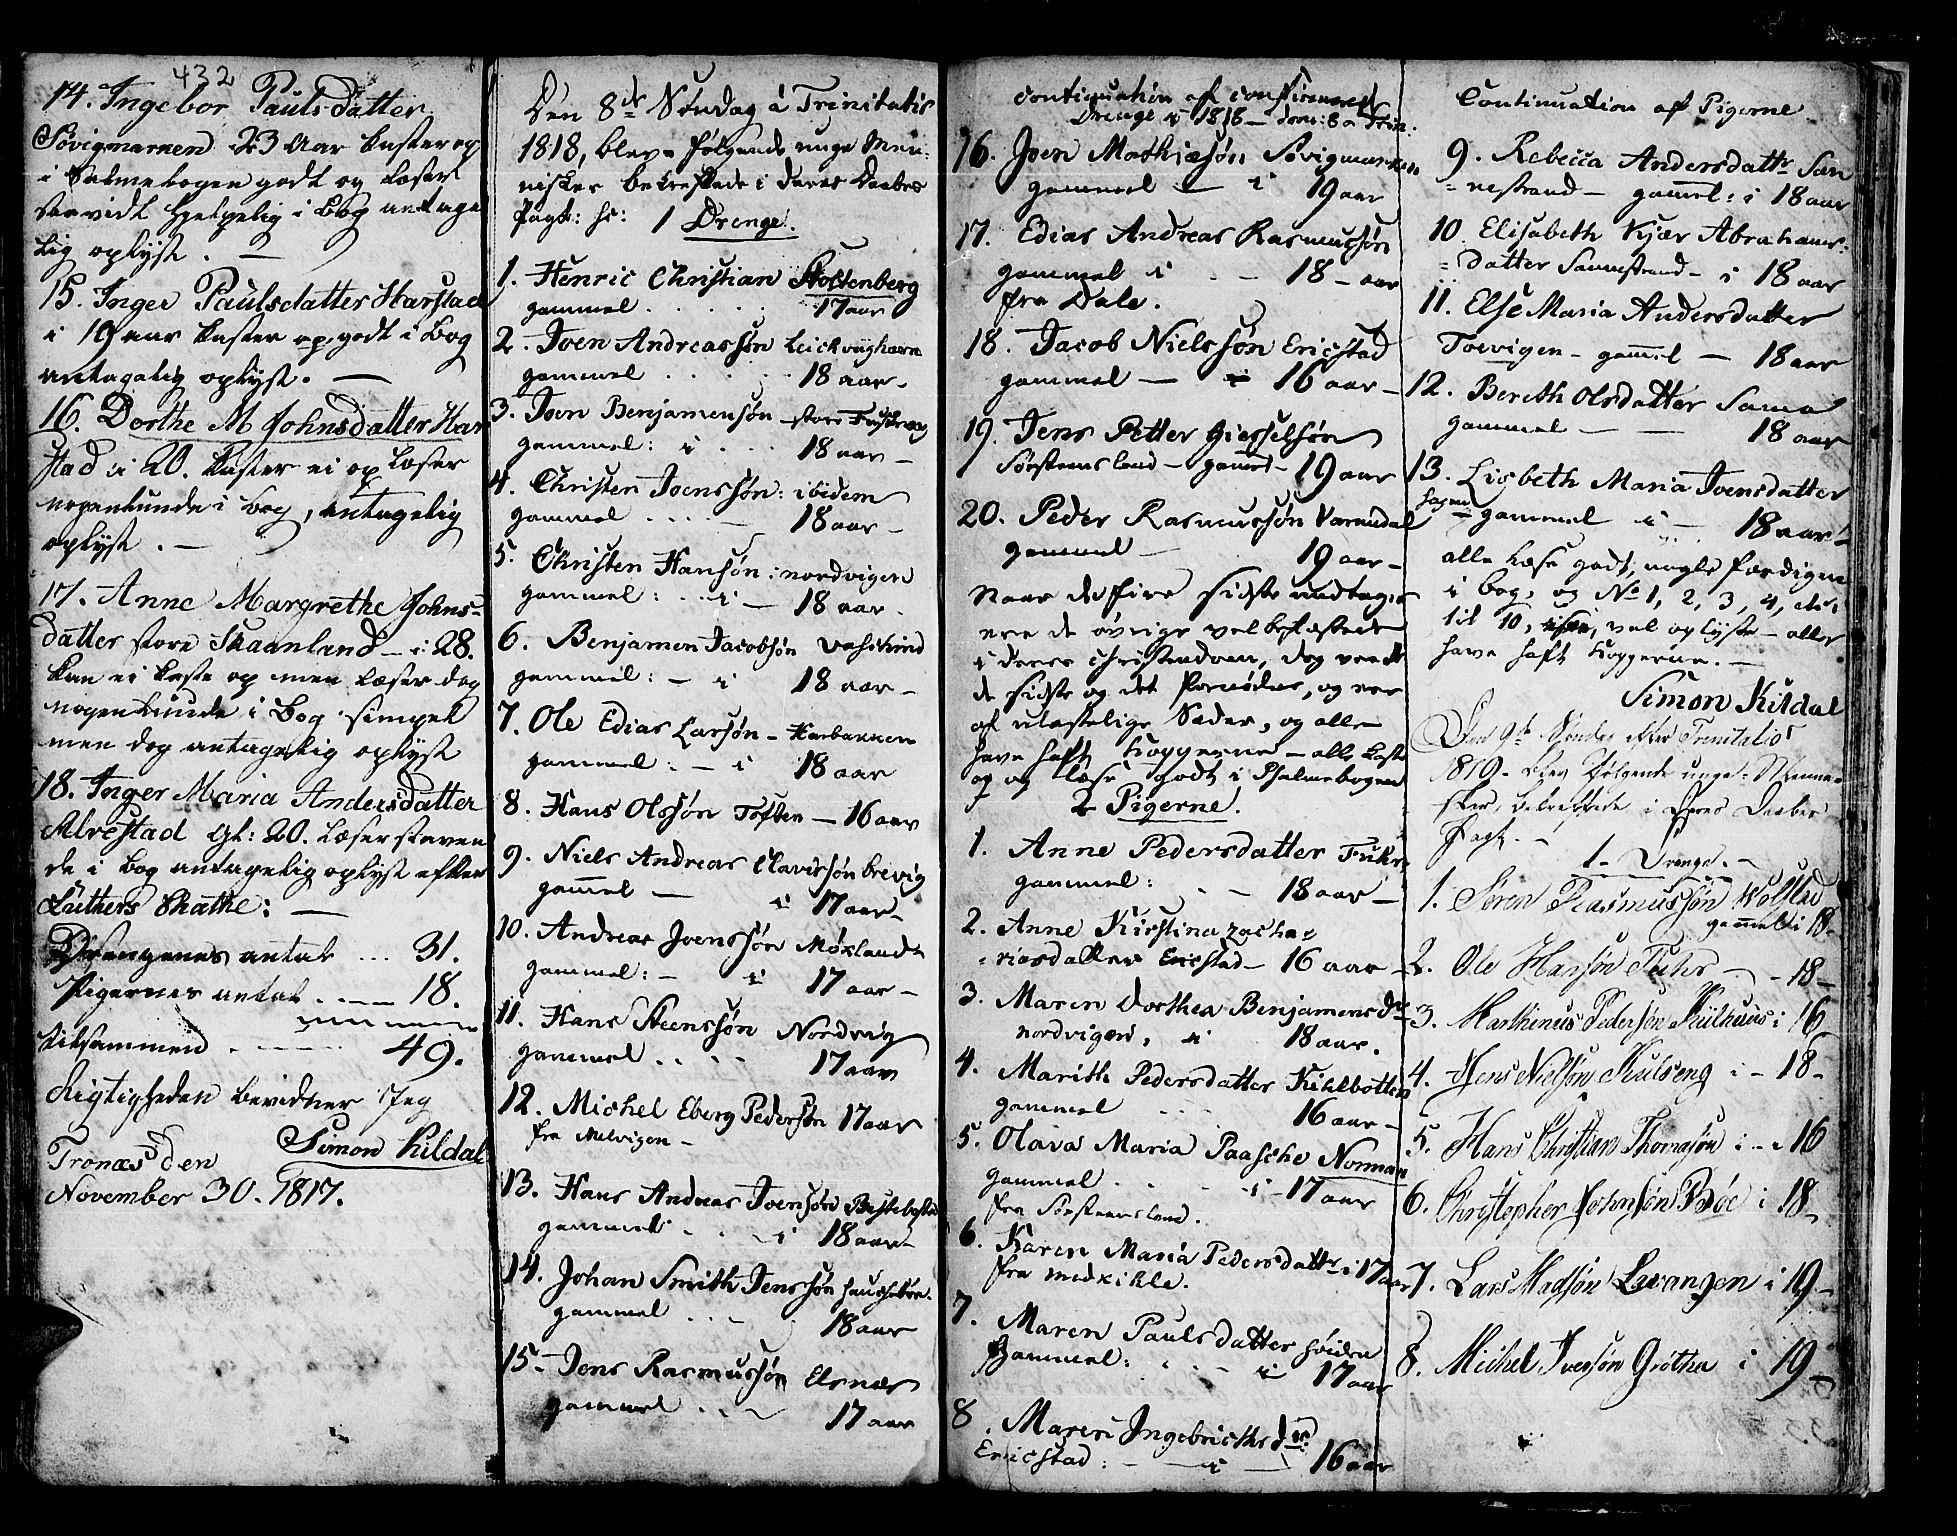 432
14. Ingebor Pauls datter
Søvigmarken 23 Aar kaster op
i Salmebogen godt og læser
saavidt hjelpelig i Bog antage
lig oplyst. —
15. Inger Paulsdatter Harstad
i 19 aar kaster op godt i Bog
antagelig oplyst. —
16. Dorthe M Johnsdatter Har
stad i 20. kaster ei op læser
nogenlunde i bog, antagelig
oplyst. —
17. Anne Margrethe Johns-
datter store Skaanland — i 28.
kan ei kaste op men læser dog
nogenlunde i Bog simpel
men dog antagelig oplyst
18. Inger Maria Andersdatter
Alvestad gl: 20. læser staven
de i bog antagelig oplyst efter
Luthers
Drengenes antal ... 31.
Pigernes antal .... 18.
tilsammen ..... 49.
Rigtigheden bevidner Jeg
Tronæs den Simon Kildal
November 30. 1817.
Den 8de Søndag a Trinitatis
1818, bleve følgende unge Men-
nisker bekræftede i deres Daabes
Pagt: se:
1 Drenge.
1. Henric Christian Stoltenberg
gammel . . . . . 17 aar
2. Joen Andreassøn
gammel . . . . 18 aar —
3. Joen Benjamensøn store
gammel: i . . . 18 aar —
4. Christen Joenssøn: ibidem
gammel . . . . — 18 aar —
5. Christen Hansøn: nordvigen
gammel: . . i — 18 aar.
6. Benjamen Jacobsøn
gammel: — i 18 aar —
7. Ole Edias Larsøn —
gammel: — i 18 aar
8. Hans Olssøn Toften — 16 aar
9. Niels Andreas Clavissøn brevig
gamel — i 17 aar —
10. Andreas Joenssøn
gammel: — i 17 aar —
11. Hans Steenssøn Nordvig
gammel . . . . 17 aar
12. Michel Eberg Pedersøn 17 aar
fra Melvigen —
13. Hans Andreas Joensøn
gammel . . — i 18 aar —
14. Johan Smith Jenssøn
gammel . . . . 18 aar
15 — Jens Rasmussøn Elsnæs
gammel . . — 17 aar
Continuation af confirmerede
Drenge i 1818 — dom: 8 a Trin.
16. Joen Mathiasøn Søvigmarken
gammel — i 19 aar
17. Edias Andreas Rasmussøn
gammel i . — 18 — aar
fra Dale.
18. Jacob Nielssøn Ericstad
gammel — i 16 aar —
19. Jens Petter Giesselsøn
Sørsteensland — gamel — 19 aar
20. Peder Rasmussøn
gammel — 19 aar —
Naar de fire sidste undtages
ere de øvrige vel befæstede
i deres christendom, dog veed
de sidste og det fornødne, og ere
af ulastelige Sæder, og alle
have haft Kopperne — alle kaste
op og læse godt i Psalmebogen
2 Pigerne.
1. Anne Pedersdatter
gammel: . — 18 aar —
2. Anne Kirstina zacha-
riasdatter Ericstad — 16 aar —
3. Maren Dorthea Benjamensdr
nordvigen, i 18 aar.
4. Marith Pedersdatter Kihlbotten
gammel . . . 16 aar —
5. Olava Maria Paasche Norman
gammel . . . — i — 17 aar
fra Sørsteensland.
6. Karen Maria Pedersdattr i 17 aar
fra medkihle.
7. Maren Paulsdatter
gammel: . . — i 17 aar
8. Maren Ingebricthsdtr
Ericstad: — — i — 16 aar
Continuation aft Pigerne
9. Rebecca Andersdattr San
nestrand — gamel: i 18 aar
10. Elisabeth Kjær Abrahams-
datter Sannestrand — i 18 aar
11. Else Maria Andersdatter
— gamel — 18 aar
12. Bereth Olsdatter Sama
gammel — — 18 aar
13. Lisbeth Maria Joensdatter
gammel i — 18 aar
alle læse godt, nogle færdigen
i bog, og No 1, 2, 3, 4, etc:
til 10, vel oplyste — alle
have haft Kopperne. —
Simon Kildal
Den 9de Søndag efter Trinitatis
1819 — blev følgende unge Menne-
sker, bekræftede i Deres Daabes
Pagt. —
1 — Drenge. —
1. Søren Rasmussøn Wolstad
gammel i 18 —
2. Ole Hansøn — — 18 —
3. Marthenus Pedersøn i 16
4. Jens Nielsøn i — 18 —
5. Hans Christian Thomasøn i — 16
6. Christopher Johnsøn Bøe i 18 —
7. Lars Madsøn Levangen i 19 —
8. Michel Iversøn Grøthe i 19 —